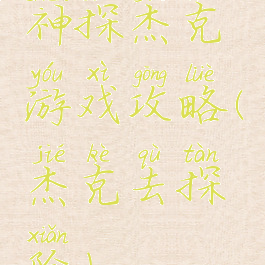 神探杰克
yóu xì gōng lüè
游戏攻略(
jié kè qù tàn
杰克去探
xiǎn
险)